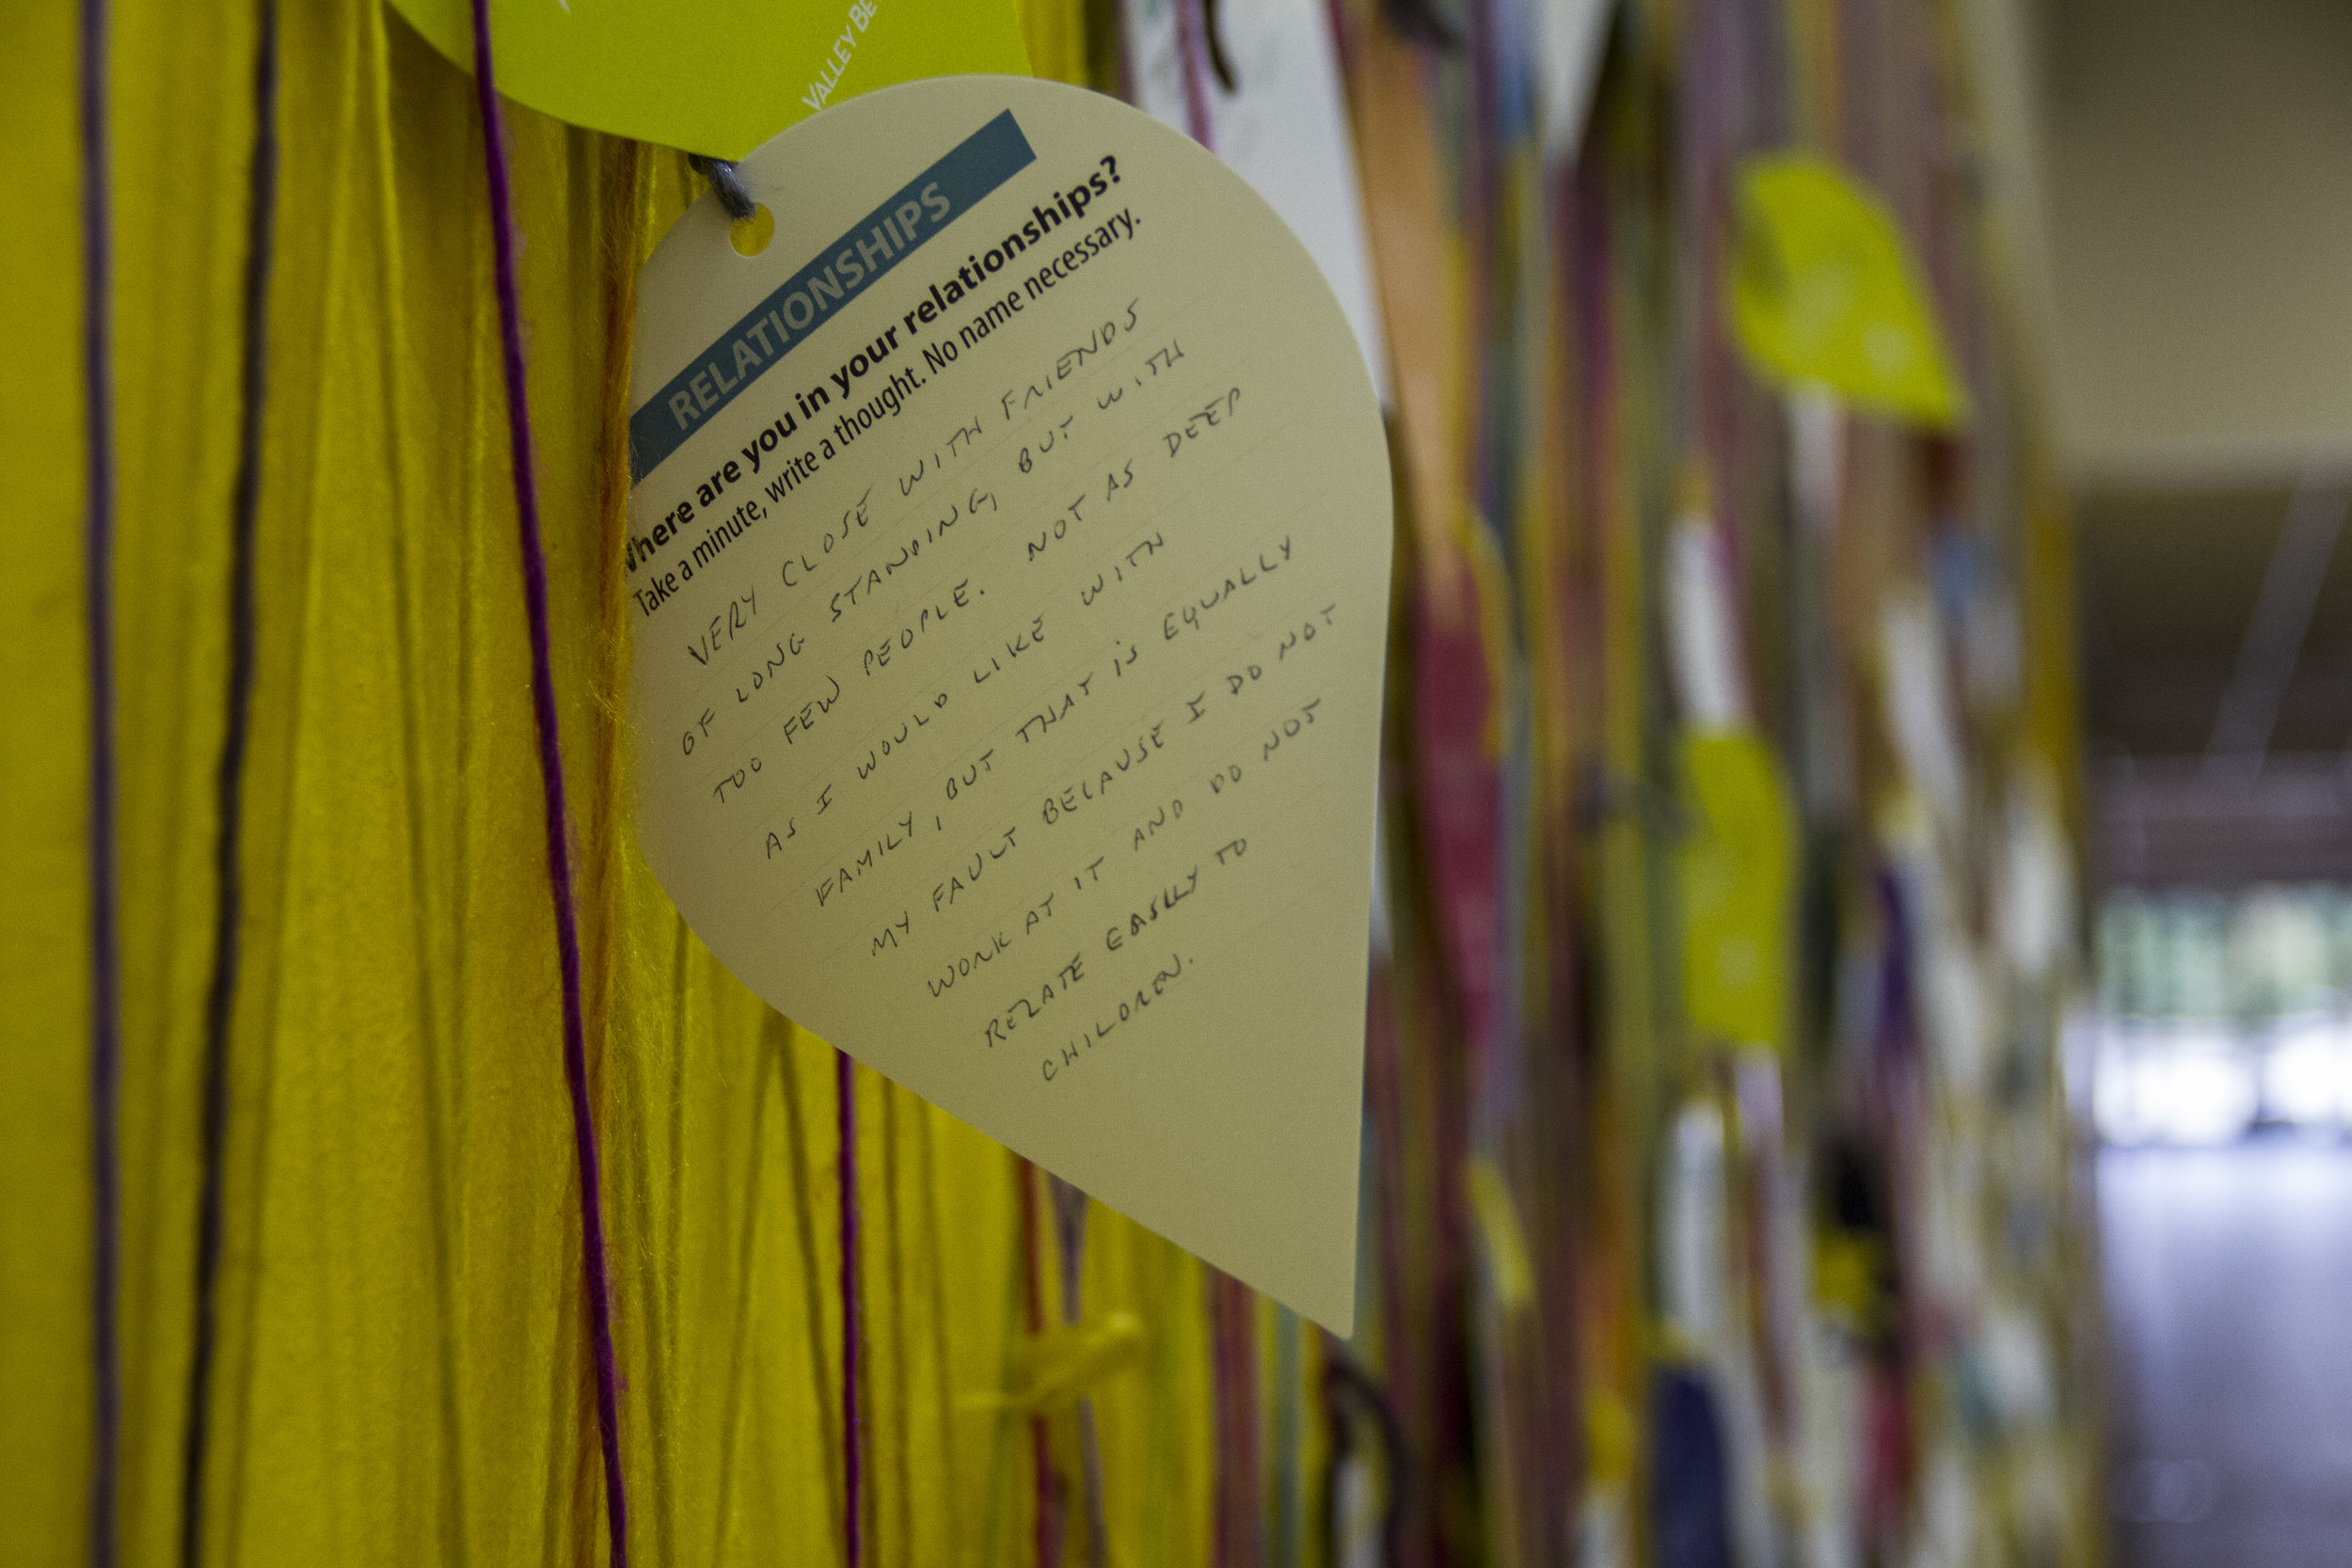 VALLEY BE
RELATIONSHIPS
Where are you in your relationships?
Take a minute, write a thought. No name necessary.
VERY CLOSE WITH FRIENDS
OF LONG STANDING, BUT WITH
TOO FEW PEOPLE. NOT AS DEEP
AS I WOULD LIKE WITH
FAMILY, BUT THAT IS EQUALLY
MY FAULT BECAUSE I DO NOT
WORK AT IT AND DO NOT
RELATE EASILY TO
CHILDREN.